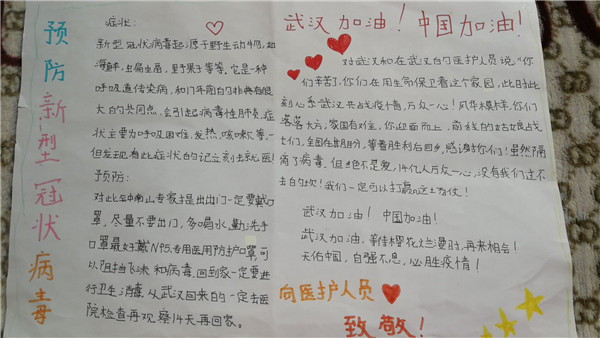 预防新型冠状病毒
症状:
新型冠状病毒起源于野生动物,如
海鲜,虫扁虫畐,野果子等等,它是一种
呼吸道传染病,和门年前的非典有很
大的共同点,会引起病毒性肺炎,症
状主要为呼吸困难,发热,咳嗽尔等,一
但发现有此症状的记立刻去就医!
预防:
对此钟南山专家提出出门一定要戴口
罩,尽量不要出门,多喝水,勤洗手
口罩最好戴N95,专用医用防护口罩,可
以阻挡飞沫和病毒,回到家一定要进
行卫生消毒,从武汉回来的一定去医
院检查再观察14天再回家。
武汉加油!中国加油!
对武汉和在武汉的医护人员说:“你
们辛苦了,你们在用生命保卫着这个家园,此时此
刻心系武汉,共战疫情,万众一心!
客客大方,家国有难,你迎面而上,前线的
士们,全国在期盼,等着胜利后回乡,感谢你们!虽然隔
离了病毒,但绝不是爱,14亿人万众一心,没有我们过不
去的坎!我们一定可以打赢这士仗!
武汉加油!中国加油!
武汉加油,等待樱花烂漫时,再来相会!
天佑中国,自强不息,必胜疫情!
向医护人员
致敬!